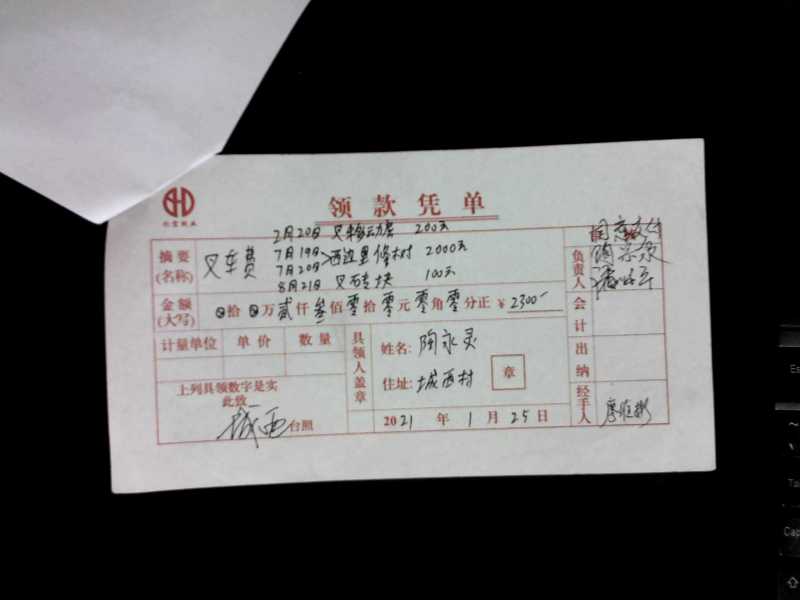 领款凭单
2月20日 叉 200元
摘要
(名称)
叉车费
7月19日
7月20日
西边里修村 2000元
8月21日 叉砖块 100元
金额
(大写)
⊗拾⊗万贰仟叁佰零拾零元零角零分正 ¥2300-
计量单位 单价 数量
上列具领数字是实
此致
城西 台照
具领人盖章
姓名: 陶永灵
住址: 城西村
章
2021 年 1 月 25 日
负责人
会计
出纳
经手人
Es
Ta
Cap